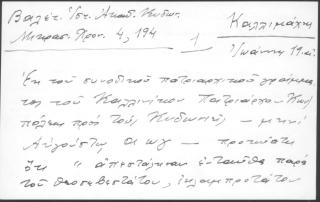 Βαλέτ. Ἱστ. Ἀκαδ. Κυδων.
Μικρασ. Χρον. 4, 194
1
Καλλιμάχη
Ἰωάννη 19 αἰ.
Ἐκ τοῦ συνοδικοῦ πατριαρχικοῦ γράμμα
τος τοῦ Καλλινίκου Πατριάρχου Κων/
πόλεως πρὸς τοὺς Κυδωνιεῖς – μηνὶ
Αὐγούστῳ αωγ – προκύπτει
ὅτι " ἀπεστάλησαν ἐνταῦθα παρὰ
τοῦ θεοσεβεστάτου, ἐκλαμπροτάτου